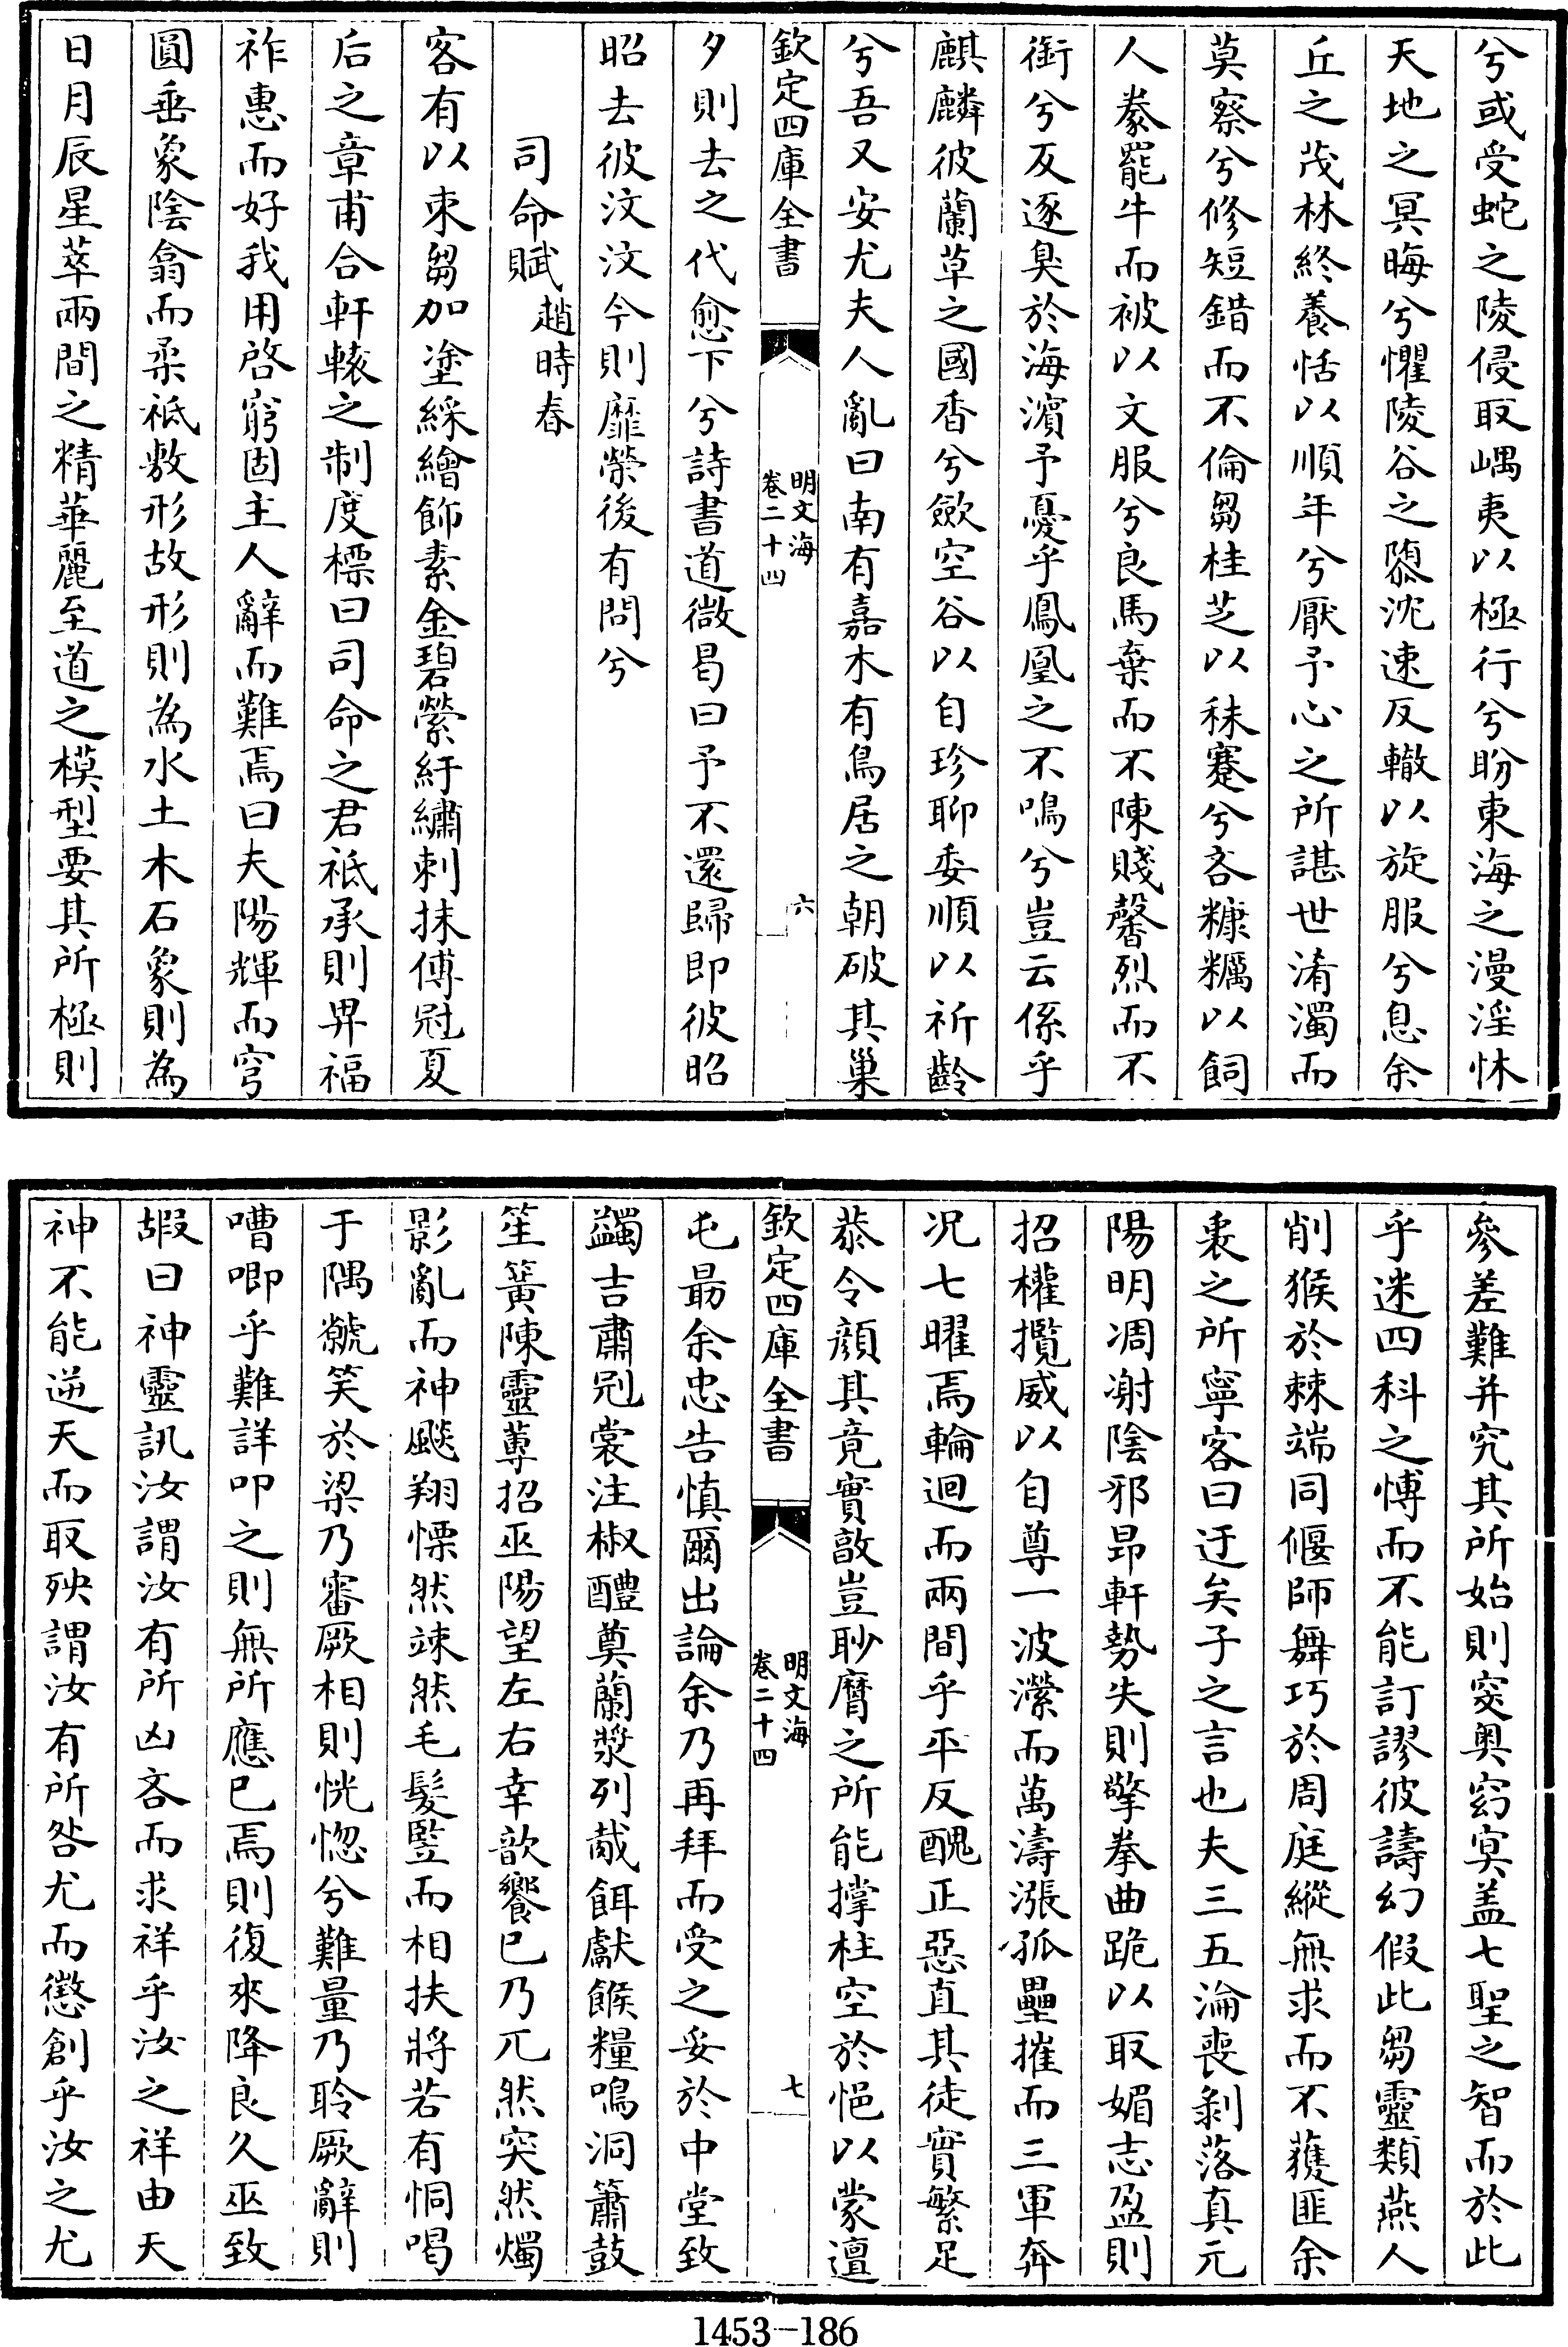 兮或受蛇之陵侵取嵎夷以極行兮盼東海之漫淫怵
天地之冥晦兮懼陵谷之隳沈速反轍以旋服兮息余
丘之茂林終養恬以順年兮厭予心之所諶世淆濁而
莫察兮修短錯而不倫芻桂芝以秣蹇兮吝糠糲以飼
人豢罷牛而被以文服兮良馬棄而不陳賤馨烈而不
銜兮反逐臭於海濱予憂乎鳳凰之不鳴兮豈云係乎
麒麟彼蘭草之國香兮歛空谷以自珍聊委順以祈齡
兮吾又安尤夫人亂曰南有嘉木有鳥居之朝破其巢
欽定四庫全書
明文海
卷二十四
六
夕則去之代愈下兮詩書道微曷曰予不還歸即彼昭
昭去彼汶汶今則靡榮後有問兮
司命賦趙時春
客有以束芻加塗綵繪飾素金碧縈紆繡刺抹傅冠夏
后之章甫合軒轅之制度標曰司命之君祗承則畀福
祚惠而好我用啓窮固主人辭而難焉曰夫陽輝而穹
圓垂象陰翕而柔祗敷形故形則為水土木石象則為
日月辰星萃兩間之精華麗至道之模型要其所極則
參差難并究其所始則窔奥窈冥盖七聖之智而於此
乎迷四科之慱而不能訂謬彼譸幻假此芻靈類燕人
削猴於棘端同偃師舞巧於周庭縱無求而不蒦匪余
衷之所寧客曰迂矣子之言也夫三五淪喪剝落真元
陽明凋谢陰邪昂軒勢失則擎拳曲跪以取媚志盈則
招權攬威以自尊一波瀠而萬濤漲孤壘摧而三軍奔
况七曜焉輪迴而兩間乎平反醜正惡直其徒實繁足
恭令顔其竟實敨豈眇麿之所能撑柱空於悒以蒙邅
欽定四庫全書
明文海
卷二十四
七
屯最余忠告慎爾出論余乃再拜而受之妥於中堂致
蠲吉肅冠裳注椒醴奠蘭漿列胾餌獻餱糧鳴洞簫鼓
笙簧陳靈蓴招巫陽望左右幸歆饗已乃兀然突然燭
影亂而神飈翔慄然竦然毛髮竪而相扶將若有恫喝
于隅虩笑於梁乃審厥相則恍惚兮難量乃聆厥辭則
嘈唧乎難詳叩之則無所應已焉則復來降良久巫致
嘏曰神靈訊汝謂汝有所凶吝而求祥乎汝之祥由天
神不能逆天而取殃謂汝有所咎尤而懲創乎汝之尤
1453-186